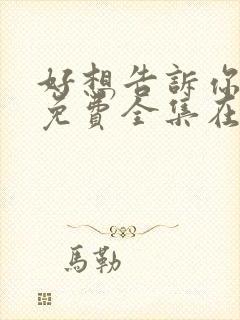 好想告訴你
免費全集在
馬勒